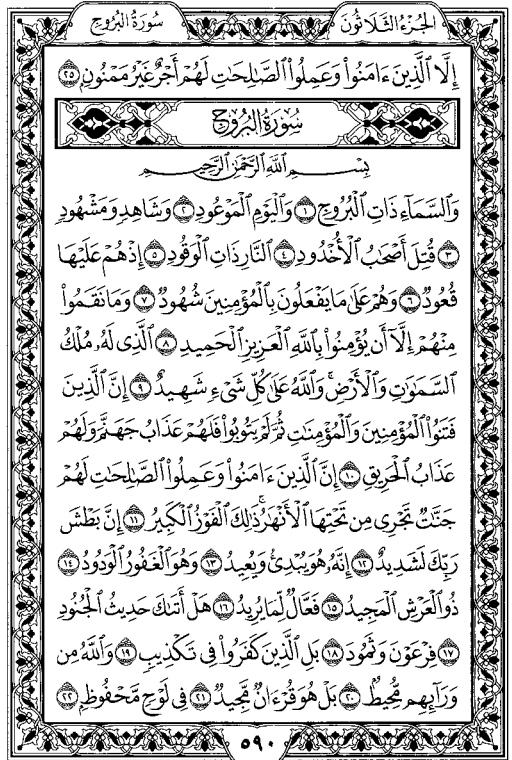 الجزء الثلاثون سورة البروج
إِلَّا ٱلَّذِينَ ءَامَنُوا۟ وَعَمِلُوا۟ ٱلصَّـٰلِحَـٰتِ لَهُمْ أَجْرٌ غَيْرُ مَمْنُونٍ ٢٥
سُورَةُ البُرُوجِ
بِسْمِ ٱللَّهِ ٱلرَّحْمَـٰنِ ٱلرَّحِيمِ
وَٱلسَّمَآءِ ذَاتِ ٱلْبُرُوجِ ١ وَٱلْيَوْمِ ٱلْمَوْعُودِ ٢ وَشَاهِدٍ وَمَشْهُودٍ
٣ قُتِلَ أَصْحَـٰبُ ٱلْأُخْدُودِ ٤ ٱلنَّارِ ذَاتِ ٱلْوَقُودِ ٥ إِذْ هُمْ عَلَيْهَا
قُعُودٌ ٦ وَهُمْ عَلَىٰ مَا يَفْعَلُونَ بِٱلْمُؤْمِنِينَ شُهُودٌ ٧ وَمَا نَقَمُوا۟
مِنْهُمْ إِلَّآ أَن يُؤْمِنُوا۟ بِٱللَّهِ ٱلْعَزِيزِ ٱلْحَمِيدِ ٨ ٱلَّذِى لَهُۥ مُلْكُ
ٱلسَّمَـٰوَٰتِ وَٱلْأَرْضِ ۚ وَٱللَّهُ عَلَىٰ كُلِّ شَىْءٍ شَهِيدٌ ٩ إِنَّ ٱلَّذِينَ
فَتَنُوا۟ ٱلْمُؤْمِنِينَ وَٱلْمُؤْمِنَـٰتِ ثُمَّ لَمْ يَتُوبُوا۟ فَلَهُمْ عَذَابُ جَهَنَّمَ وَلَهُمْ
عَذَابُ ٱلْحَرِيقِ ١٠ إِنَّ ٱلَّذِينَ ءَامَنُوا۟ وَعَمِلُوا۟ ٱلصَّـٰلِحَـٰتِ لَهُمْ
جَنَّـٰتٌ تَجْرِى مِن تَحْتِهَا ٱلْأَنْهَـٰرُ ۚ ذَٰلِكَ ٱلْفَوْزُ ٱلْكَبِيرُ ١١ إِنَّ بَطْشَ
رَبِّكَ لَشَدِيدٌ ١٢ إِنَّهُۥ هُوَ يُبْدِئُ وَيُعِيدُ ١٣ وَهُوَ ٱلْغَفُورُ ٱلْوَدُودُ ١٤
ذُو ٱلْعَرْشِ ٱلْمَجِيدُ ١٥ فَعَّالٌ لِّمَا يُرِيدُ ١٦ هَلْ أَتَىٰكَ حَدِيثُ ٱلْجُنُودِ
١٧ فِرْعَوْنَ وَثَمُودَ ١٨ بَلِ ٱلَّذِينَ كَفَرُوا۟ فِى تَكْذِيبٍ ١٩ وَٱللَّهُ مِن
وَرَآئِهِم مُّحِيطٌۢ ٢٠ بَلْ هُوَ قُرْءَانٌ مَّجِيدٌ ٢١ فِى لَوْحٍ مَّحْفُوظٍۭ ٢٢
٥٩٠